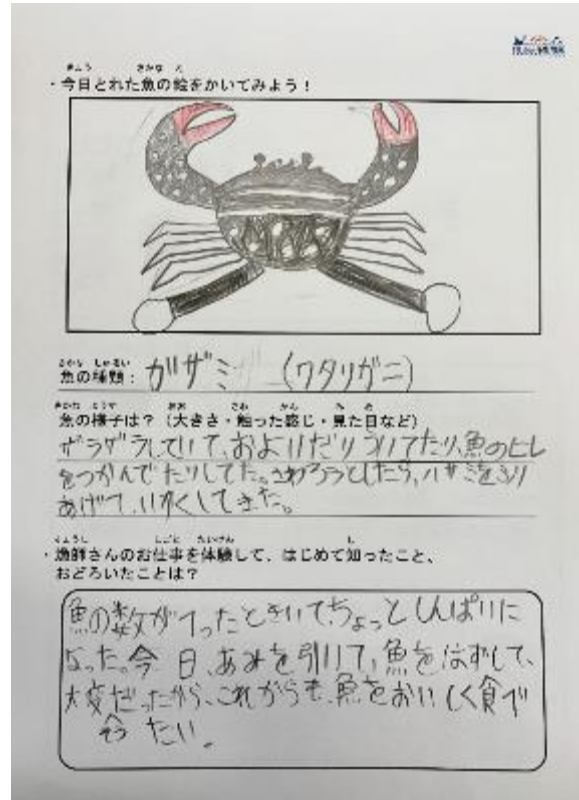 ・今日とれた魚の絵をかいてみよう！
魚の種類：ガザミ (ワタリガニ)
魚の様子は？（大きさ・触った感じ・見た目など）
ザラザラしていて、およいだりういてたり、魚のヒレ
をつかんでたりしてた。さわろうとしたら、ハサミをふり
あげて、いかくしてきた。
・漁師さんのお仕事を体験して、はじめて知ったこと、
おどろいたことは？
魚の数がへったときいて、ちょっとしんぱいに
なった。今日、あみを引いて、魚をはずして、
大変だったから、これからも、魚をおいしく食べ
たい。